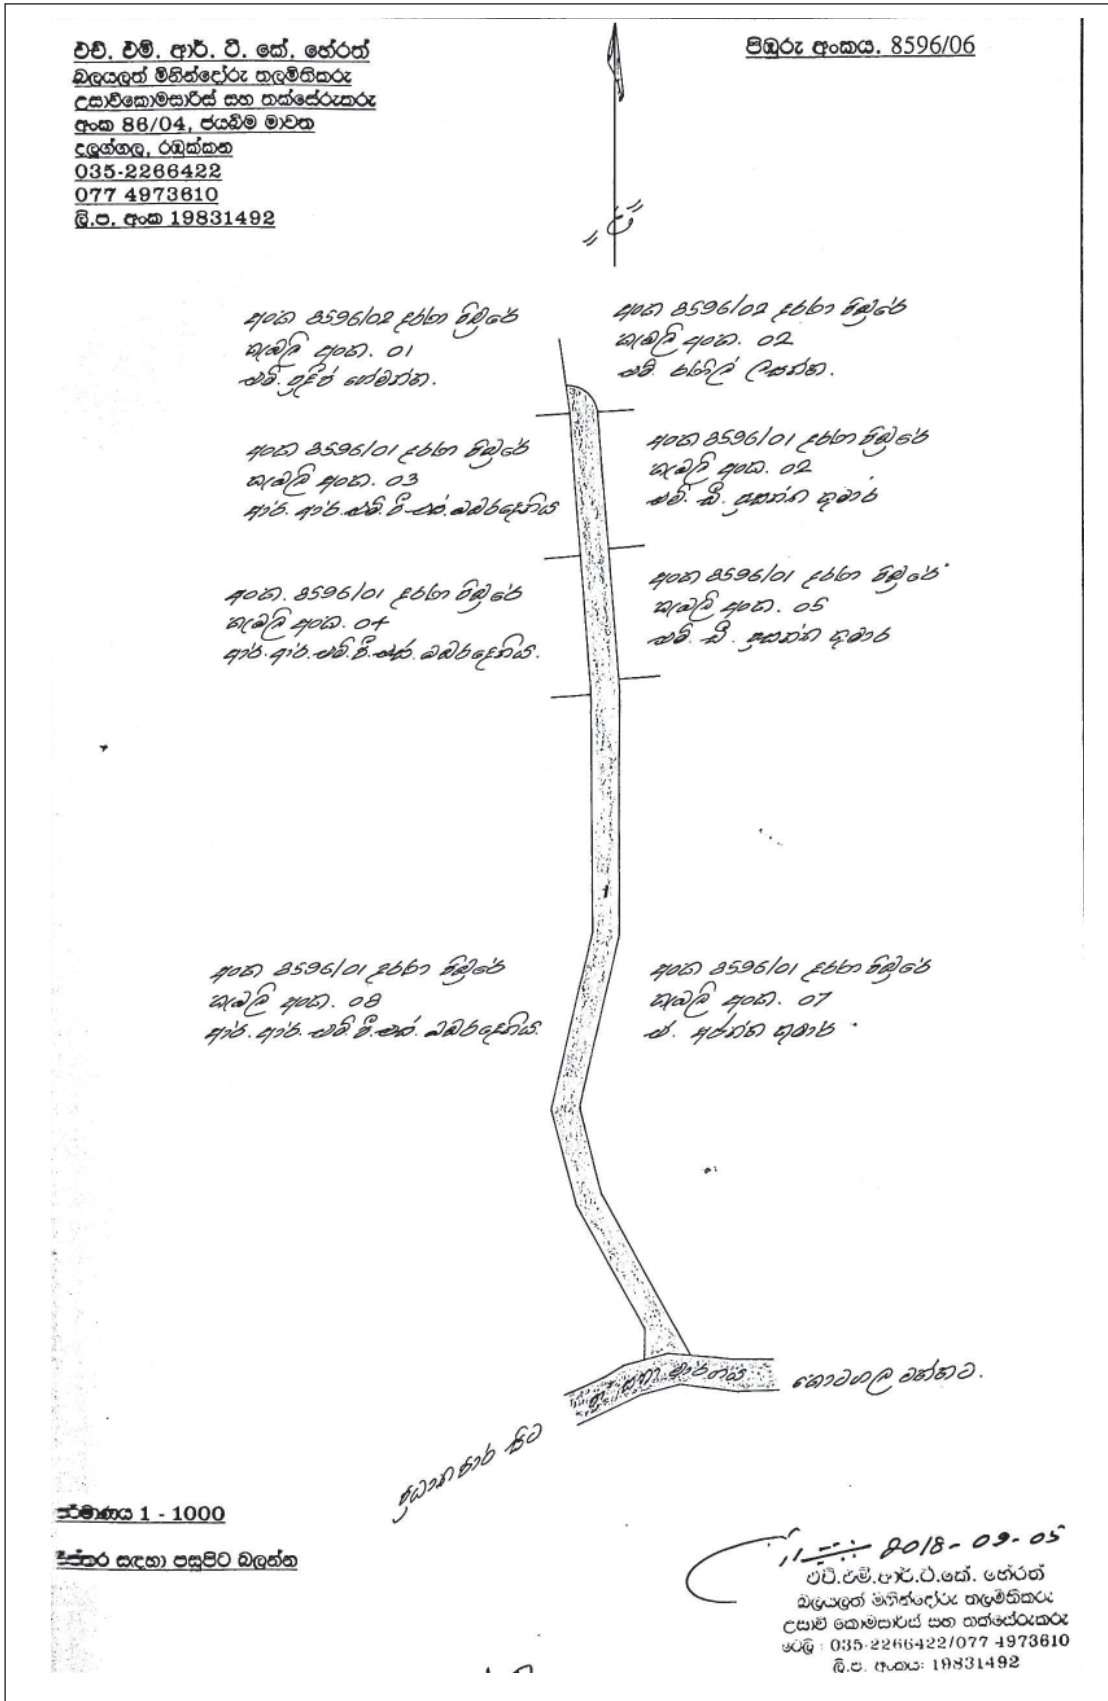 එච්. එම්. ආර්. ටී. කේ. හේරත්
බලයලත් මිනින්දෝරු තලමිතිකරු
උසාවිකොමසාරිස් සහ තක්සේරුකරු
අංක 86/04, ජයබිම මාවත
දලුග්ගල, රඹුක්කන
035-2266422
077 4973610
ලි.ප. අංක 19831492
පිඹුරු අංකය. 8596/06
"උ"
අංක 8596/02 දරණ පිඹුරේ
කැබලි අංක. 01
එම්. ප්‍රදීප් හේමන්ත.
අංක 8596/02 දරණ පිඹුරේ
කැබලි අංක. 02
එම්. ලසන්ත.
අංක 8596/01 දරණ පිඹුරේ
කැබලි අංක. 03
ආර්. ආර්. එම්. පී. එස්. ඔබරදෙනිය
අංක 8596/01 දරණ පිඹුරේ
කැබලි අංක. 02
එම්. ඩී. ප්‍රසන්න කුමාර
අංක. 8596/01 දරණ පිඹුරේ
කැබලි අංක. 04
ආර්. ආර්. එම්. පී. එස්. ඔබරදෙනිය.
අංක 8596/01 දරණ පිඹුරේ
කැබලි අංක. 05
එම්. ඩී. ප්‍රසන්න කුමාර
1
අංක 8596/01 දරණ පිඹුරේ
කැබලි අංක. 08
ආර්. ආර්. එම්. පී. එස්. ඔබරදෙනිය.
අංක 8596/01 දරණ පිඹුරේ
කැබලි අංක. 07
කුමාර
ප්‍ර. සභා මාර්ගය
ගොටගල මත්තට.
ප්‍රධාන පාර සිට
පරිමාණය 1 - 1000
විස්තර සඳහා පසුපිට බලන්න
2018-09-05
එච්.එම්.ආර්.ටී.කේ. හේරත්
බලයලත් මිනින්දෝරු තලමිතිකරු
උසාවි කොමසාරිස් සහ තක්සේරුකරු
ටෙලි : 035-2266422/077 4973610
ලි.ප. අංකය: 19831492